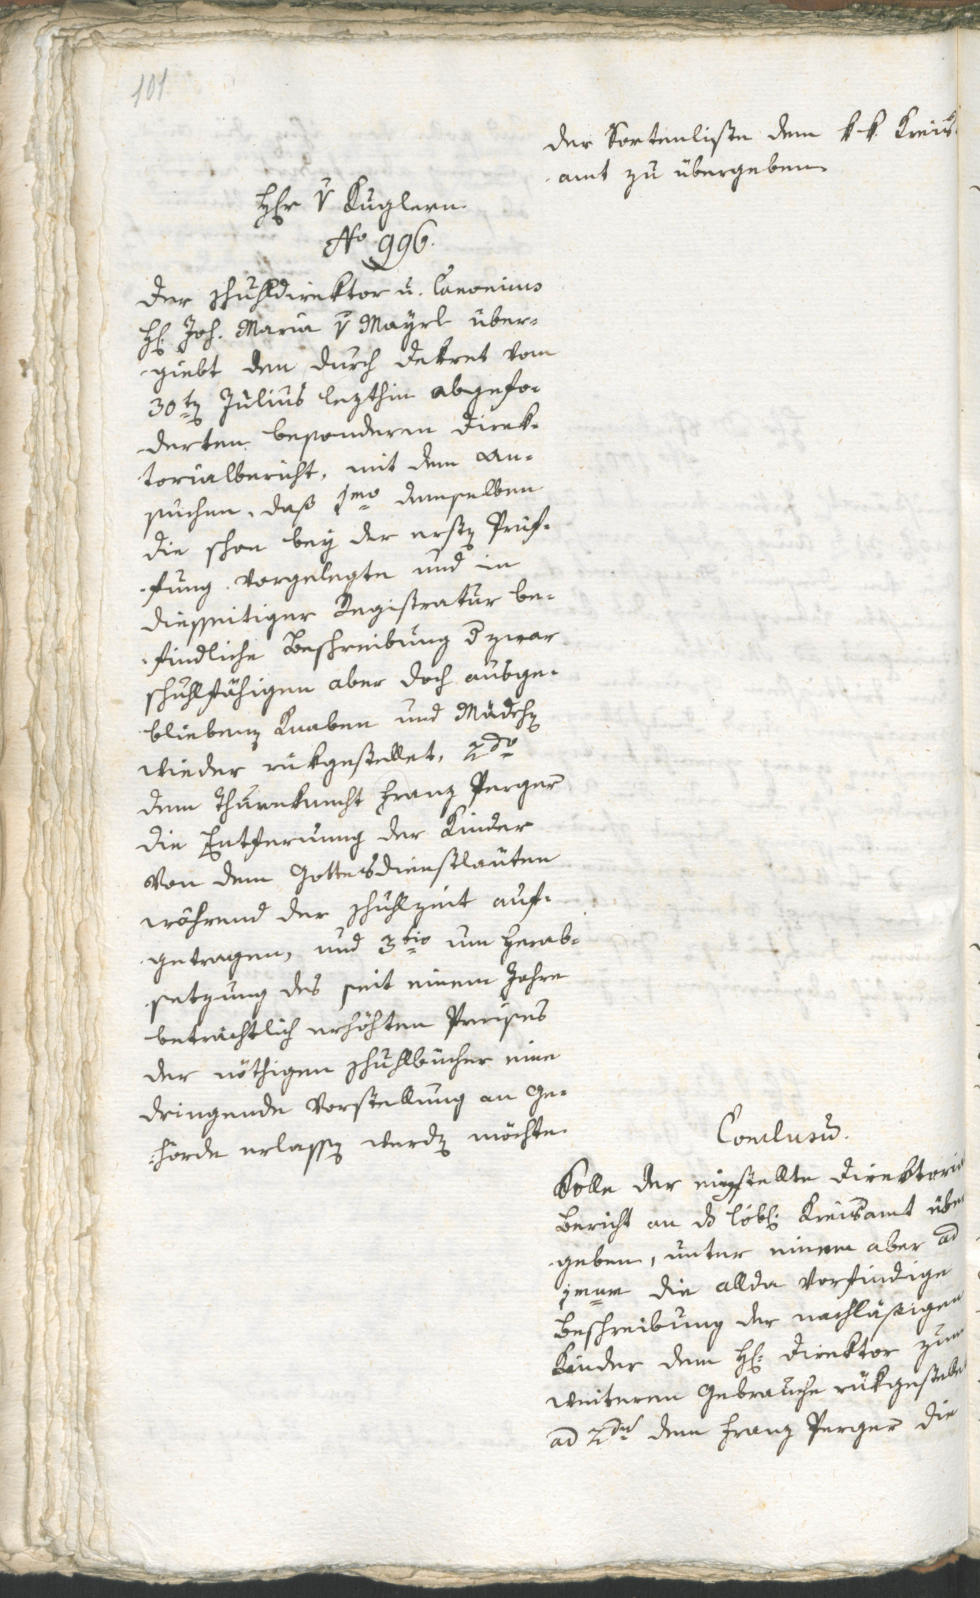 101.
der Sortenliste dem k k Kreis
amt zu übergeben.
Hr v Kuglern.
No 996.
Der Schuldirektor u. Canonicus
H: Joh. Maria v Mayrl über-
giebt den durch Dekret vom
30ten Julius lezthin abgefo-
derten besonderen Direk-
torialbericht, mit dem An-
suchen, daß 1mo demselben
die schon bey der ersten Prüf-
fung vorgelegte und in
diesseitiger Registratur be-
findliche Beschreibung d zwar
schuhlfähigen aber doch ausge-
bliebenen Knaben und Mädchen
wieder rükgestellet, 2do
dem Thurnknecht Franz Perger
die Entfernung der Kinder
von dem Gottesdienstläuten
während der Schuhlzeit auf-
getragen, und 3tio um Herab-
setzung des seit einem Jahre
beträchtlich erhöhten Preises
der nöthigen Schuhlbücher eine
dringende Vorstellung an Ge-
hörde erlassen werden möchte.
Conclusum.
Solle der eingestellte Direktorial
Bericht an d löbl: Kreisamt über
geben, unter einem aber ad
1mum die allda vorfindige
Beschreibung der nachläßigen
Kinder dem H: Direktor zum
weiteren Gebrauche rükgestellet
ad 2dum dem Franz Perger die